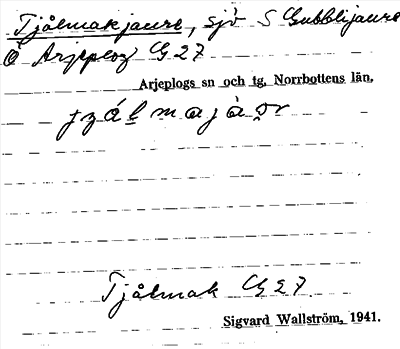 Tjålmakjaure, sjö S Gubblijaure
Ö Arjeplog G 27
Arjeplogs sn och tg, Norrbottens län.
Tjålmak G 27.
Sigvard Wallström, 1941.